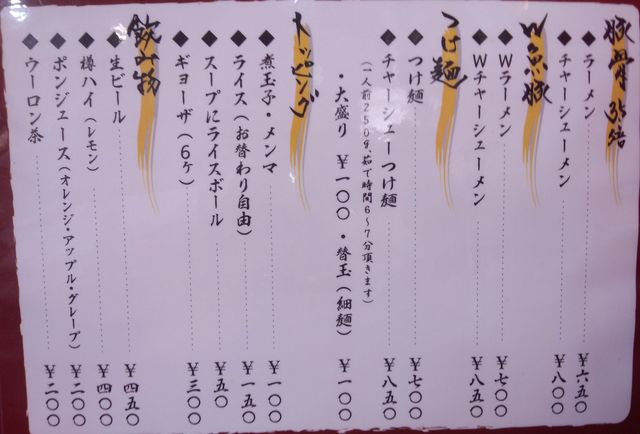 豚骨
◆ラーメン ¥六五〇
◆チャーシューメン ¥八〇〇
W魚豚
◆Wラーメン ¥七〇〇
◆Wチャーシューメン ¥八五〇
つけ麺
◆つけ麺 ¥七〇〇
◆チャーシューつけ麺 ¥八五〇
(一人前250g、茹で時間6~7分頂きます)
・大盛り ¥一〇〇 ・替玉(細麺) ¥一〇〇
トッピング
◆煮玉子・メンマ ¥一〇〇
◆ライス(お替わり自由) ¥一五〇
◆スープにライスボール ¥五〇
◆ギョーザ(6ケ) ¥三〇〇
飲み物
◆生ビール ¥四五〇
◆樽ハイ(レモン) ¥四〇〇
◆ポンジュース(オレンジ・アップル・グレープ) ¥二〇〇
◆ウーロン茶 ¥二〇〇